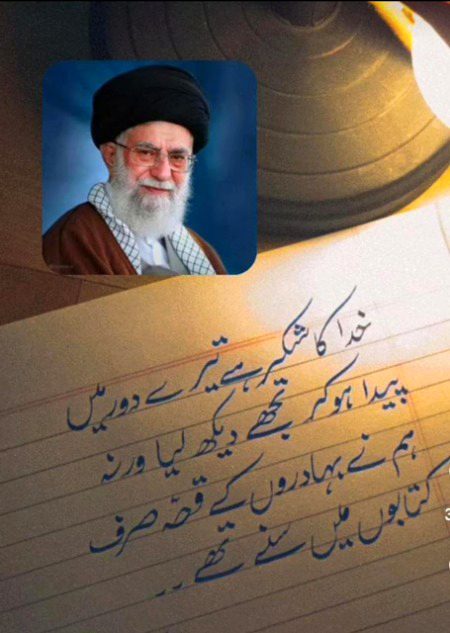 خدا کا شکر ہے تیرے دور میں
پیدا ہو کر تجھے دیکھ لیا ورنہ
ہم نے بہادروں کے قصّہ صرف
کتابوں میں سنے تھے ..
3